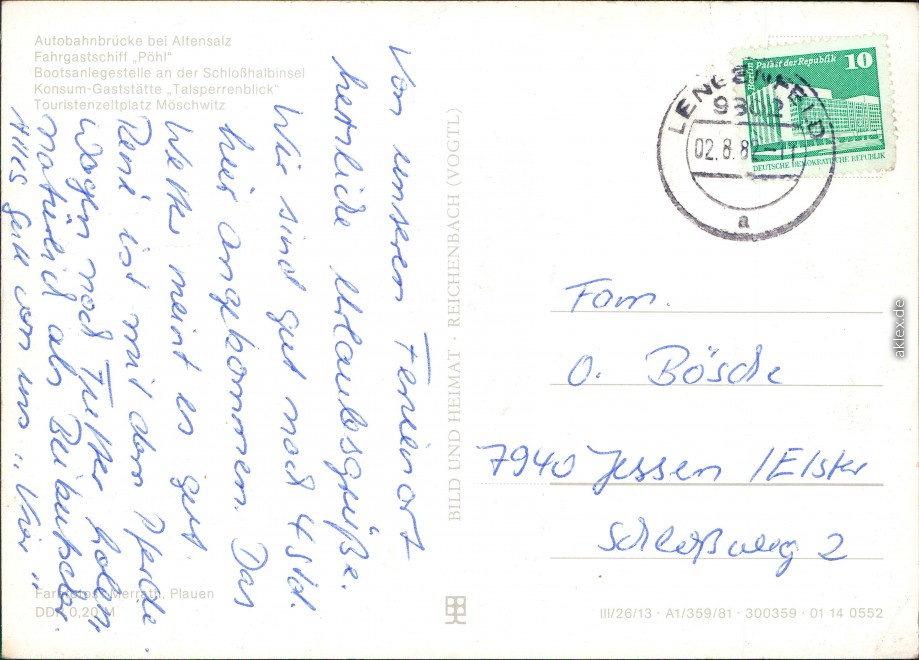 Autobahnbrücke bei Altensalz
Fahrgastschiff „Pöhl"
Bootsanlegestelle an der Schloßhalbinsel
Konsum-Gaststätte „Talsperrenblick"
Touristenzeltplatz Möschwitz
Von unserem Ferienort
herrliche Urlaubsgrüße.
Wir sind gut nach 4 Std.
hier angekommen. Das
Wetter meint es gut.
René ist mit dem Pferde
wagen nach Futter holen,
natürlich als Beikutscher.
Alles Gute von uns
BILD UND HEIMAT · REICHENBACH (VOGTL)
Berlin
Palast der Republik
10
DEUTSCHE DEMOKRATISCHE REPUBLIK
LENGENFELD
9802
02.8.82-17
a
Fam.
O. Bösche
7940 Jessen /Elster
Schloßweg 2
Merrath, Plauen
DD 0,20 M
III/26/13 · A1/359/81 · 300359 · 01 14 0552
aklex.de